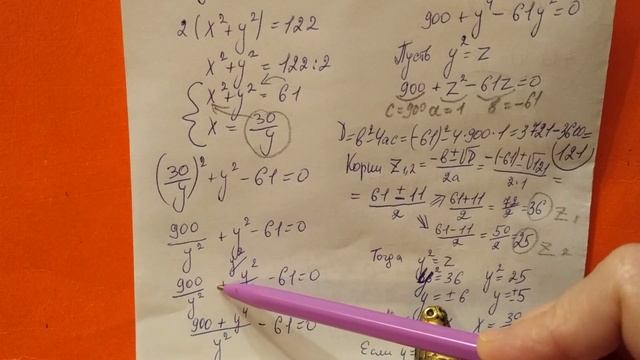 2(x²+y²)=122
x²+y² = 122:2
x²+y² = 61
x = 30/y
(30/y)² + y² - 61 = 0
900/y² + y² - 61 = 0
900/y² + y⁴/y² - 61 = 0
900 + y⁴/y² - 61 = 0
900 + y⁴ - 61y² = 0
Пусть y² = z
900 + z² - 61z = 0
c=900 a=1 b=-61
D = b² - 4ac = (-61)² - 4·900·1 = 3721 - 3600 = 121
Корни z₁,₂ = -b±√D/2a = -(-61)±√121/2·1 =
= 61±11/2 ⇒ 61+11/2 = 72/2 = 36 z₁
61-11/2 = 50/2 = 25 z₂
Тогда y² = z
y² = 36 y² = 25
y = ±6 y = ±5
Если y =